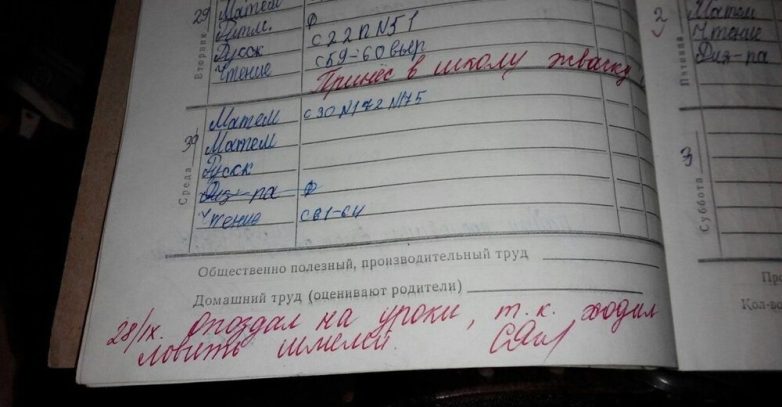 29
Вторник
Матем
Ритм. Ф
Русск с22п N51
Чтение с59-60 выр
Принёс в школу жвачку
30
Среда
Матем с30 N172 N175
Матем
Русск
Физ-ра Ф
Чтение с61-64
Общественно полезный, производительный труд
Домашний труд (оценивают родители)
28/IX. Опоздал на уроки, т.к. ходил
ловить шмелей.
2
Пятница
Матем
Чтение
Физ-ра
3
Суббота
Кол-во